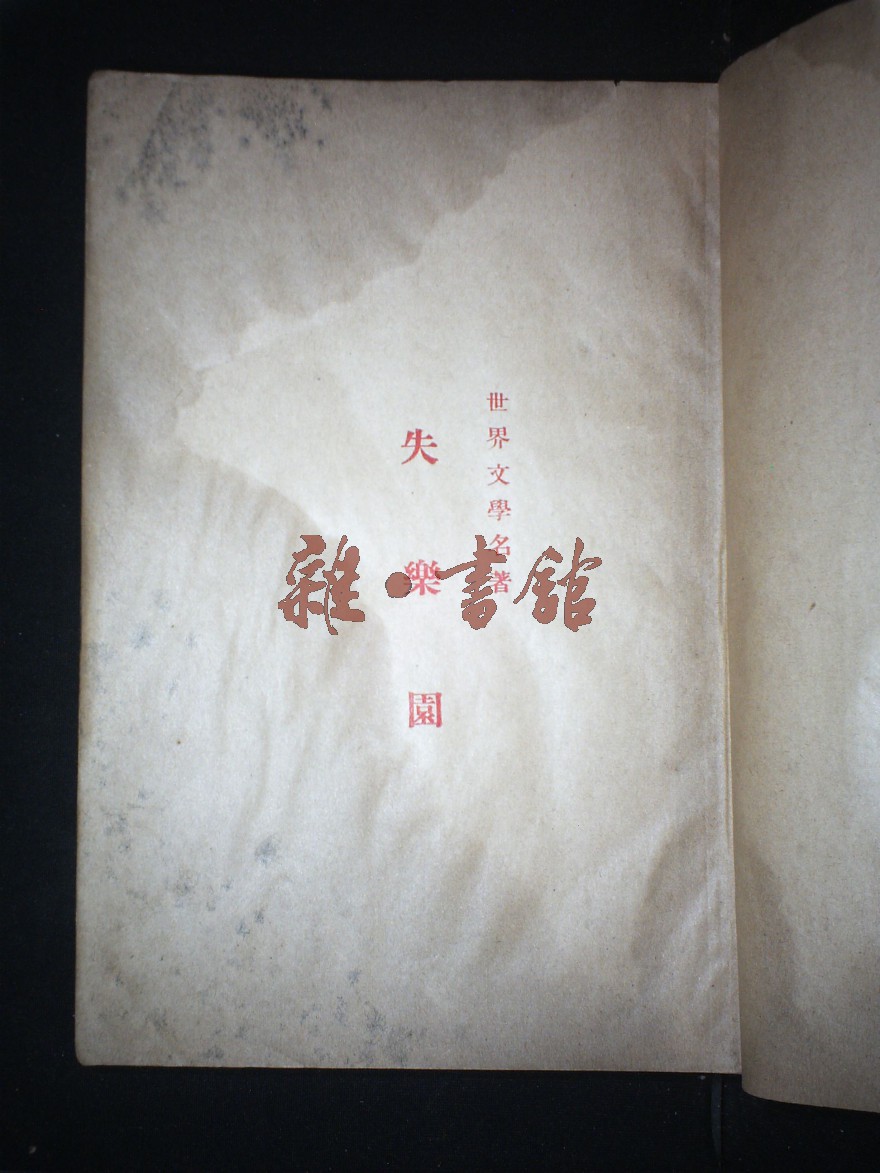 世界文學名著
失樂園
雜·書館